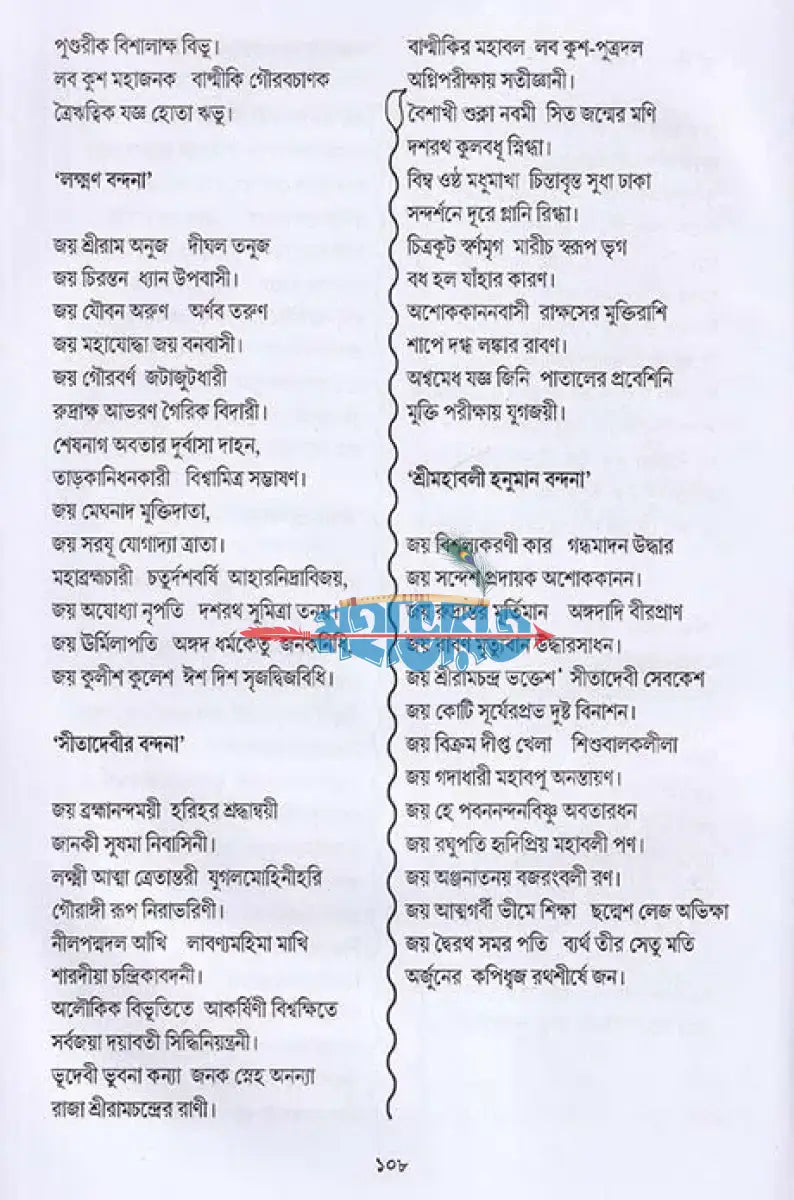 পুণ্ডরীক বিশালাক্ষ বিভু।
লব কুশ মহাজনক বাল্মীকি গৌরবচাণক
ত্রৈঋত্বিক যজ্ঞ হোতা ঋভু।
‘লক্ষ্মণ বন্দনা’
জয় শ্রীরাম অনুজ দীঘল তনুজ
জয় চিরন্তন ধ্যান উপবাসী।
জয় যৌবন অরুণ অর্ণব তরুণ
জয় মহাযোদ্ধা জয় বনবাসী।
জয় গৌরবর্ণ জটাজুটধারী
রুদ্রাক্ষ আভরণ গৈরিক বিদারী।
শেষনাগ অবতার দুর্বাসা দাহন,
তাড়কানিধনকারী বিশ্বামিত্র সম্ভাষণ।
জয় মেঘনাদ মুক্তিদাতা,
জয় সরযূ যোগাদ্যা ত্রাতা।
মহাব্রহ্মচারী চতুর্দশবর্ষি আহারনিদ্রাবিজয়,
জয় অযোধ্যা নৃপতি দশরথ সুমিত্রা তনয়।
জয় ঊর্মিলাপতি অঙ্গদ ধর্মকেতু জনকনিধি
জয় কুলীশ কুলেশ ঈশ দিশ সৃজদ্বিজবিধি।
‘সীতাদেবীর বন্দনা’
জয় ব্রহ্মানন্দময়ী হরিহর শ্রদ্ধান্বয়ী
জানকী সুষমা নিবাসিনী।
লক্ষ্মী আত্মা ত্রেতান্তরী যুগলমোহিনীহরি
গৌরাঙ্গী রূপ নিরাভরিণী।
নীলপদ্মদল আঁখি লাবণ্যমহিমা মাখি
শারদীয়া চন্দ্রিকাবদনী।
অলৌকিক বিভূতিতে আকর্ষিণী বিশ্বক্ষিতে
সর্বজয়া দয়াবতী সিদ্ধিনিয়ন্ত্রনী।
ভূদেবী ভুবনা কন্যা জনক স্নেহ অনন্যা
রাজা শ্রীরামচন্দ্রের রাণী।
বাল্মীকির মহাবল লব কুশ-পুত্রদল
অগ্নিপরীক্ষায় সতীজ্ঞানী।
বৈশাখী শুক্লা নবমী সিত জন্মের মণি
দশরথ কুলবধূ স্নিগ্ধা।
বিম্ব ওষ্ঠ মধুমাখা চিন্তাবৃন্ত সুধা ঢাকা
সন্দর্শনে দূরে গ্লানি রিগ্ধা।
চিত্রকূট স্বর্ণমৃগ মারীচ স্বরূপ ভৃগ
বধ হল যাঁহার কারণ।
অশোককাননবাসী রাক্ষসের মুক্তিরাশি
শাপে দগ্ধ লঙ্কার রাবণ।
অশ্বমেধ যজ্ঞ জিনি পাতালের প্রবেশিনি
মুক্তি পরীক্ষায় যুগজয়ী।
‘শ্রীমহাবলী হনুমান বন্দনা’
জয় বিশল্যকরণী কার গন্ধমাদন উদ্ধার
জয় সন্দেশ প্রদায়ক অশোককানন।
জয় রুদ্রাতর মূর্তিমান অঙ্গদাদি বীরপ্রাণ
মহাভারত
জয় রাবণ মৃত্যুবান উদ্ধারসাধন।
জয় শ্রীরামচন্দ্র ভক্তেশ' সীতাদেবী সেবকেশ
জয় কোটি সূর্যেরপ্রভ দুষ্ট বিনাশন।
জয় বিক্রম দীপ্ত খেলা শিশুবালকলীলা
জয় গদাধারী মহাবপূ অনন্তায়ণ।
জয় হে পবননন্দনবিষ্ণু অবতারধন
জয় রঘুপতি হৃদিপ্রিয় মহাবলী পণ।
জয় অঞ্জনাতনয় বজরংবলী রণ।
জয় আত্মগর্বী ভীমে শিক্ষা ছদ্মেশ লেজ অভিক্ষা
জয় দ্বৈরথ সমর পতি ব্যর্থ তীর সেতু মতি
অর্জুনের কপিধ্বজ রথশীর্ষে জন।
১০৮